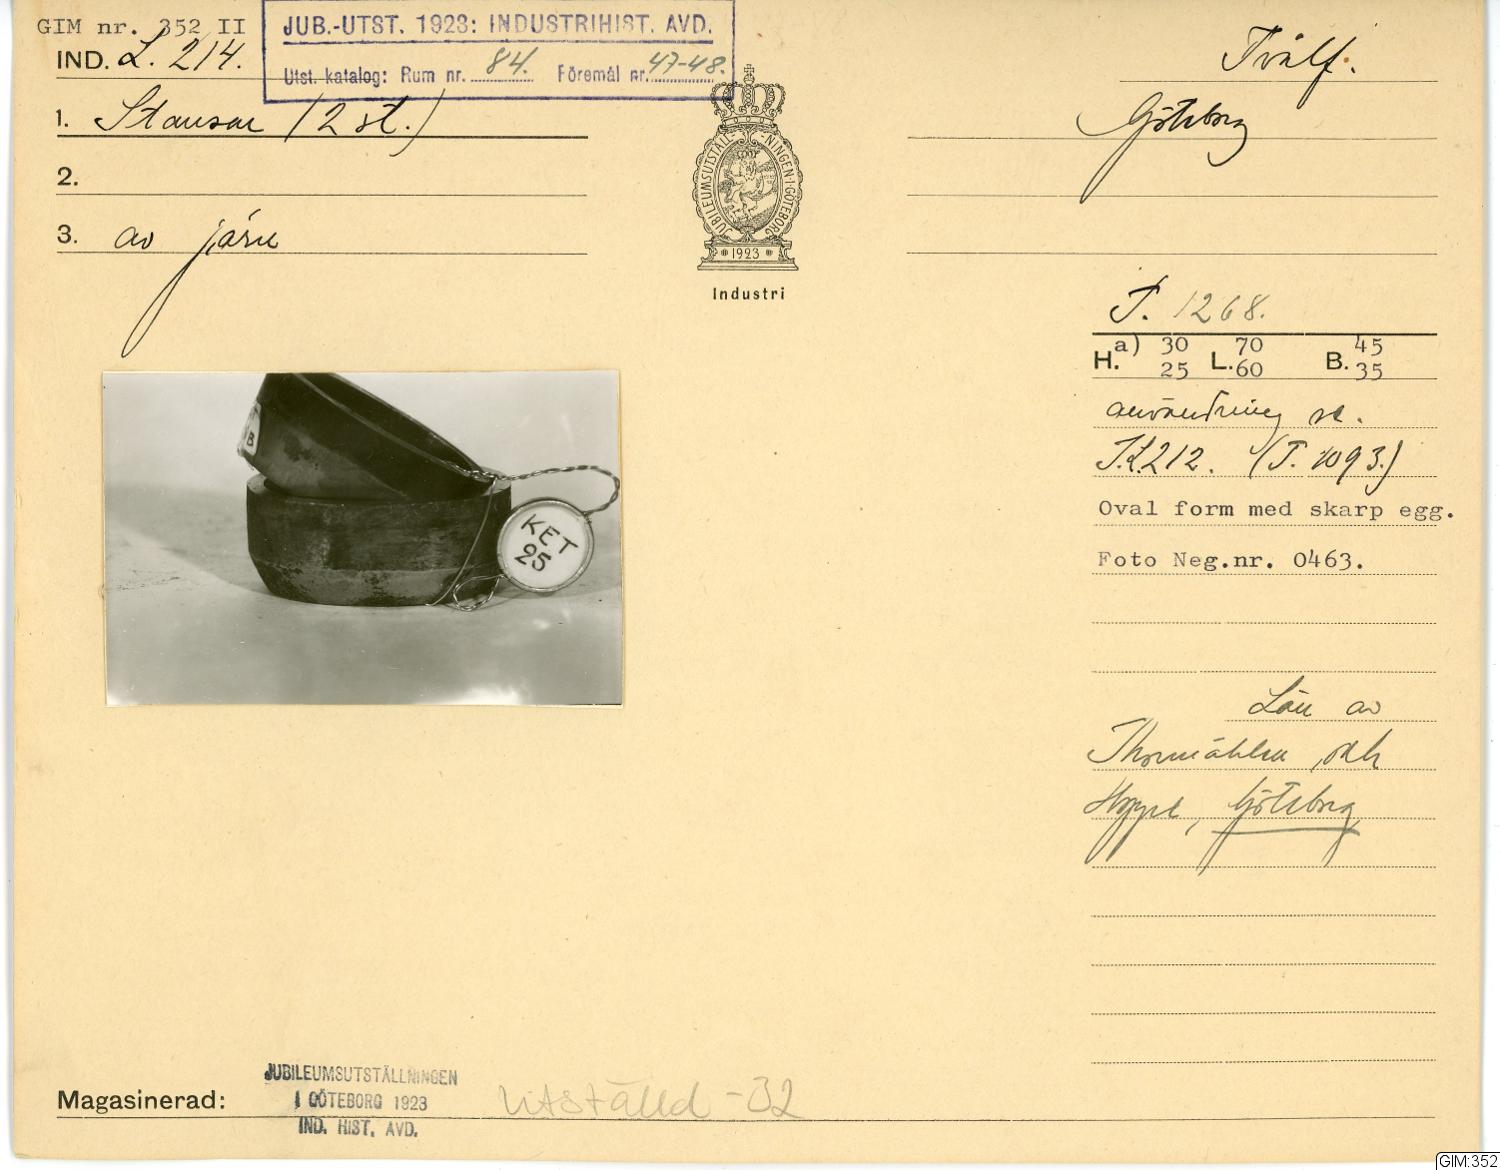 GIM nr. 352 II
IND. L. 214.
JUB.-UTST. 1923: INDUSTRIHIST. AVD.
Utst. katalog: Rum nr. 84. Föremål nr. 47-48.
Tvålf.
Göteborg
1. Stansar (2 st.)
2.
3. av järn
JUBILEUMSUTSTÄLLNINGEN I GÖTEBORG
1923
Industri
T. 1268.
a) 30 70 45
H. L. B.
25 60 35
användning se.
I.L.212. (T. 1093.)
Oval form med skarp egg.
Foto Neg.nr. 0463.
B
KET
25
Lån av
Thormählen och
Hoppe, Göteborg
Magasinerad:
JUBILEUMSUTSTÄLLNINGEN
I GÖTEBORG 1923
IND. HIST. AVD.
Utställd -32
GIM:352